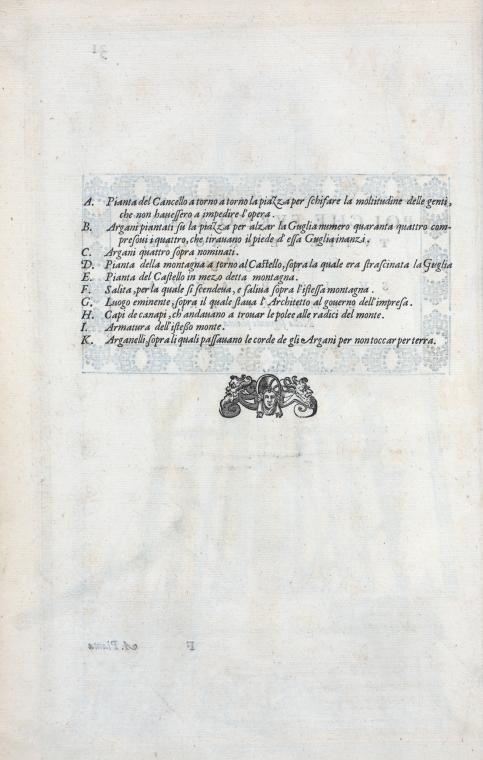 A. Pianta del Cancello a torno a torno la piazza per schifare la moltitudine delle genti,
che non hauessero a impedire l'opera.
B. Argani piantati sù la piazza per alzar la Guglia numero quaranta quattro com-
presoui i quattro, che tirauano il piede d'essa Guglia inanzi.
C. Argani quattro sopra nominati.
D. Pianta della montagna a torno al Castello, sopra la quale era strascinata la Guglia
E. Pianta del Castello in mezo detta montagna.
F. Salita, per la quale si scendeua, e saliua sopra l'istessa montagna.
G. Luogo eminente, sopra il quale staua l'Architetto al gouerno dell'impresa.
H. Capi de canapi, ch'andauano a trouar le polee alle radici del monte.
I. Armatura dell'istesso monte.
K. Arganelli sopra li quali passauano le corde de gli Argani per non toccar per terra.